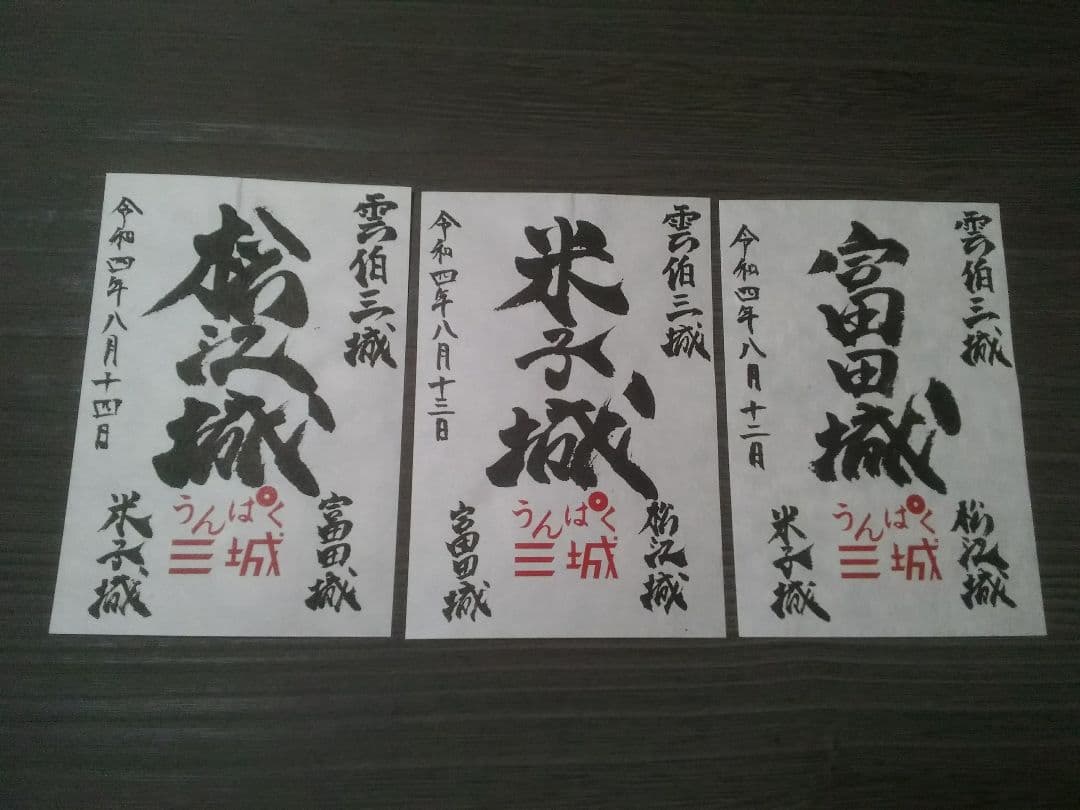 雲伯三城
松江城
令和四年八月十四日
富田城
うんぱく
三城
米子城
雲伯三城
米子城
令和四年八月十三日
松江城
うんぱく
三城
富田城
雲伯三城
富田城
令和四年八月十二日
松江城
うんぱく
三城
米子城